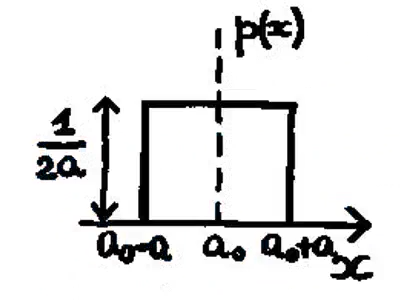 p(x)
1/2a
a₀-a a₀ a₀+a x